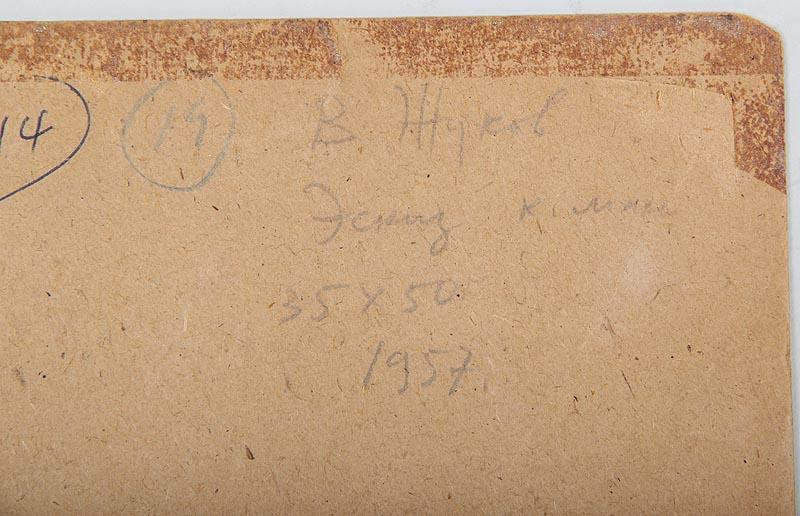 14 14 В Жуков
Эскиз к
35 х 50
1957.